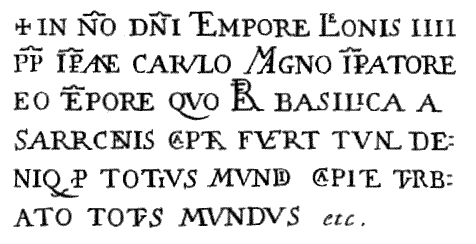 ✠ IN N̅O DN̅I TEMPORE LEONIS IIII
P̅P̅ IP̅AE CARVLO MAGNO IP̅ATORE
EO TE̅PORE QVO BASILICA A
SARRCENIS CAPTA FVERT TVNC DE=
NIQ P TOTIVS MVNDI CAPITE TVRB=
ATO TOTVS MVNDVS etc.